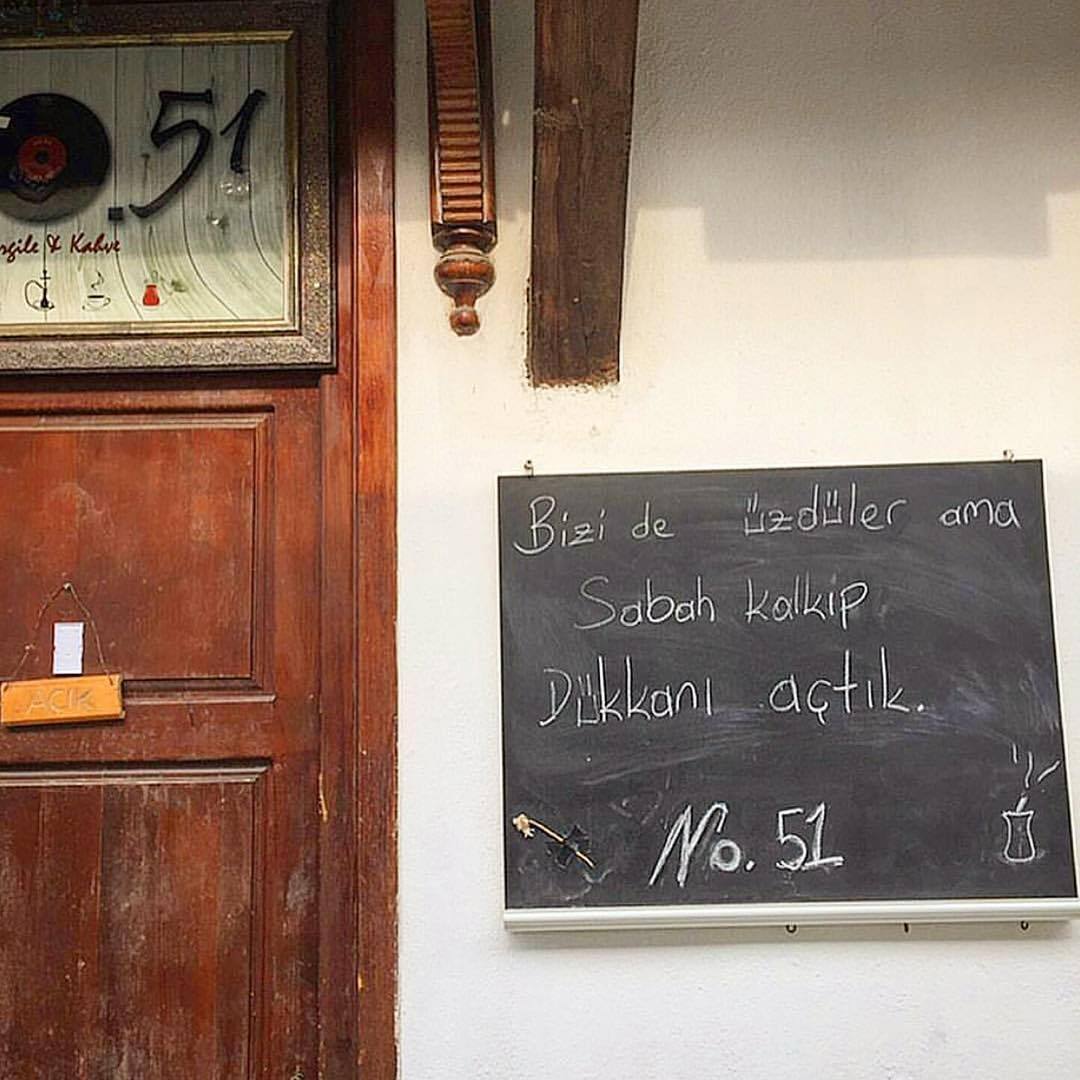 .51
rgile & Kahve
AÇIK
Bizi de üzdüler ama
Sabah kalkip
Dükkanı açtık.
No. 51